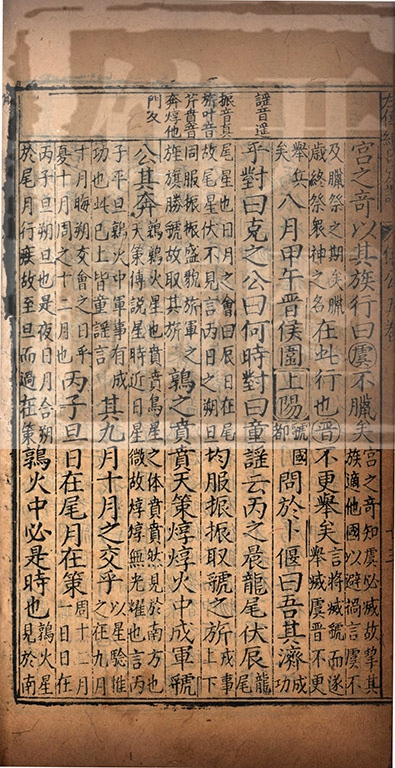 謡音遥
振音真
旂叶音
芹賁音
奔焞他
門反
宮之奇以其族行曰虞不臘矣
宮之奇知虞必滅故挈其
族適他國以避禍言虞不
及臘祭之期矣臘
歲終祭衆神之名
在此行也晉不更舉矣
言將滅虢而遂
舉滅虞晉不更
舉兵
矣
八月甲午晉侯圍上陽
虢國
都
問於卜偃曰吾其濟
成
功
乎對曰克之公曰何時對曰童謡云丙之晨龍尾伏辰
龍
尾星也日月之會曰辰日在尾
故尾星伏不見言丙日之朔旦
均服振振取虢之旂
戎事
上下
同服振振盛貌旂軍之
旌旗勝虢故取其旂
鶉之賁賁天策焞焞火中成軍虢
公其奔
鶉鶉火星也賁賁鳥星之体賁賁然見於南方也
天策傅說星時近日星微故焞焞無光耀也言丙
子平旦鶉火中軍事有成
功也此已上皆童謡言
其九月十月之交乎
以星驗推
之在九月
十月晦朔交會之日乎
夏十月周之十二月也
丙子旦日在尾月在策
周十二月
一日日在
丙子旦朔旦也是夜日月合朔
於尾月行疾故至旦而過在策
鶉火中必是時也
鶉火星
見於南